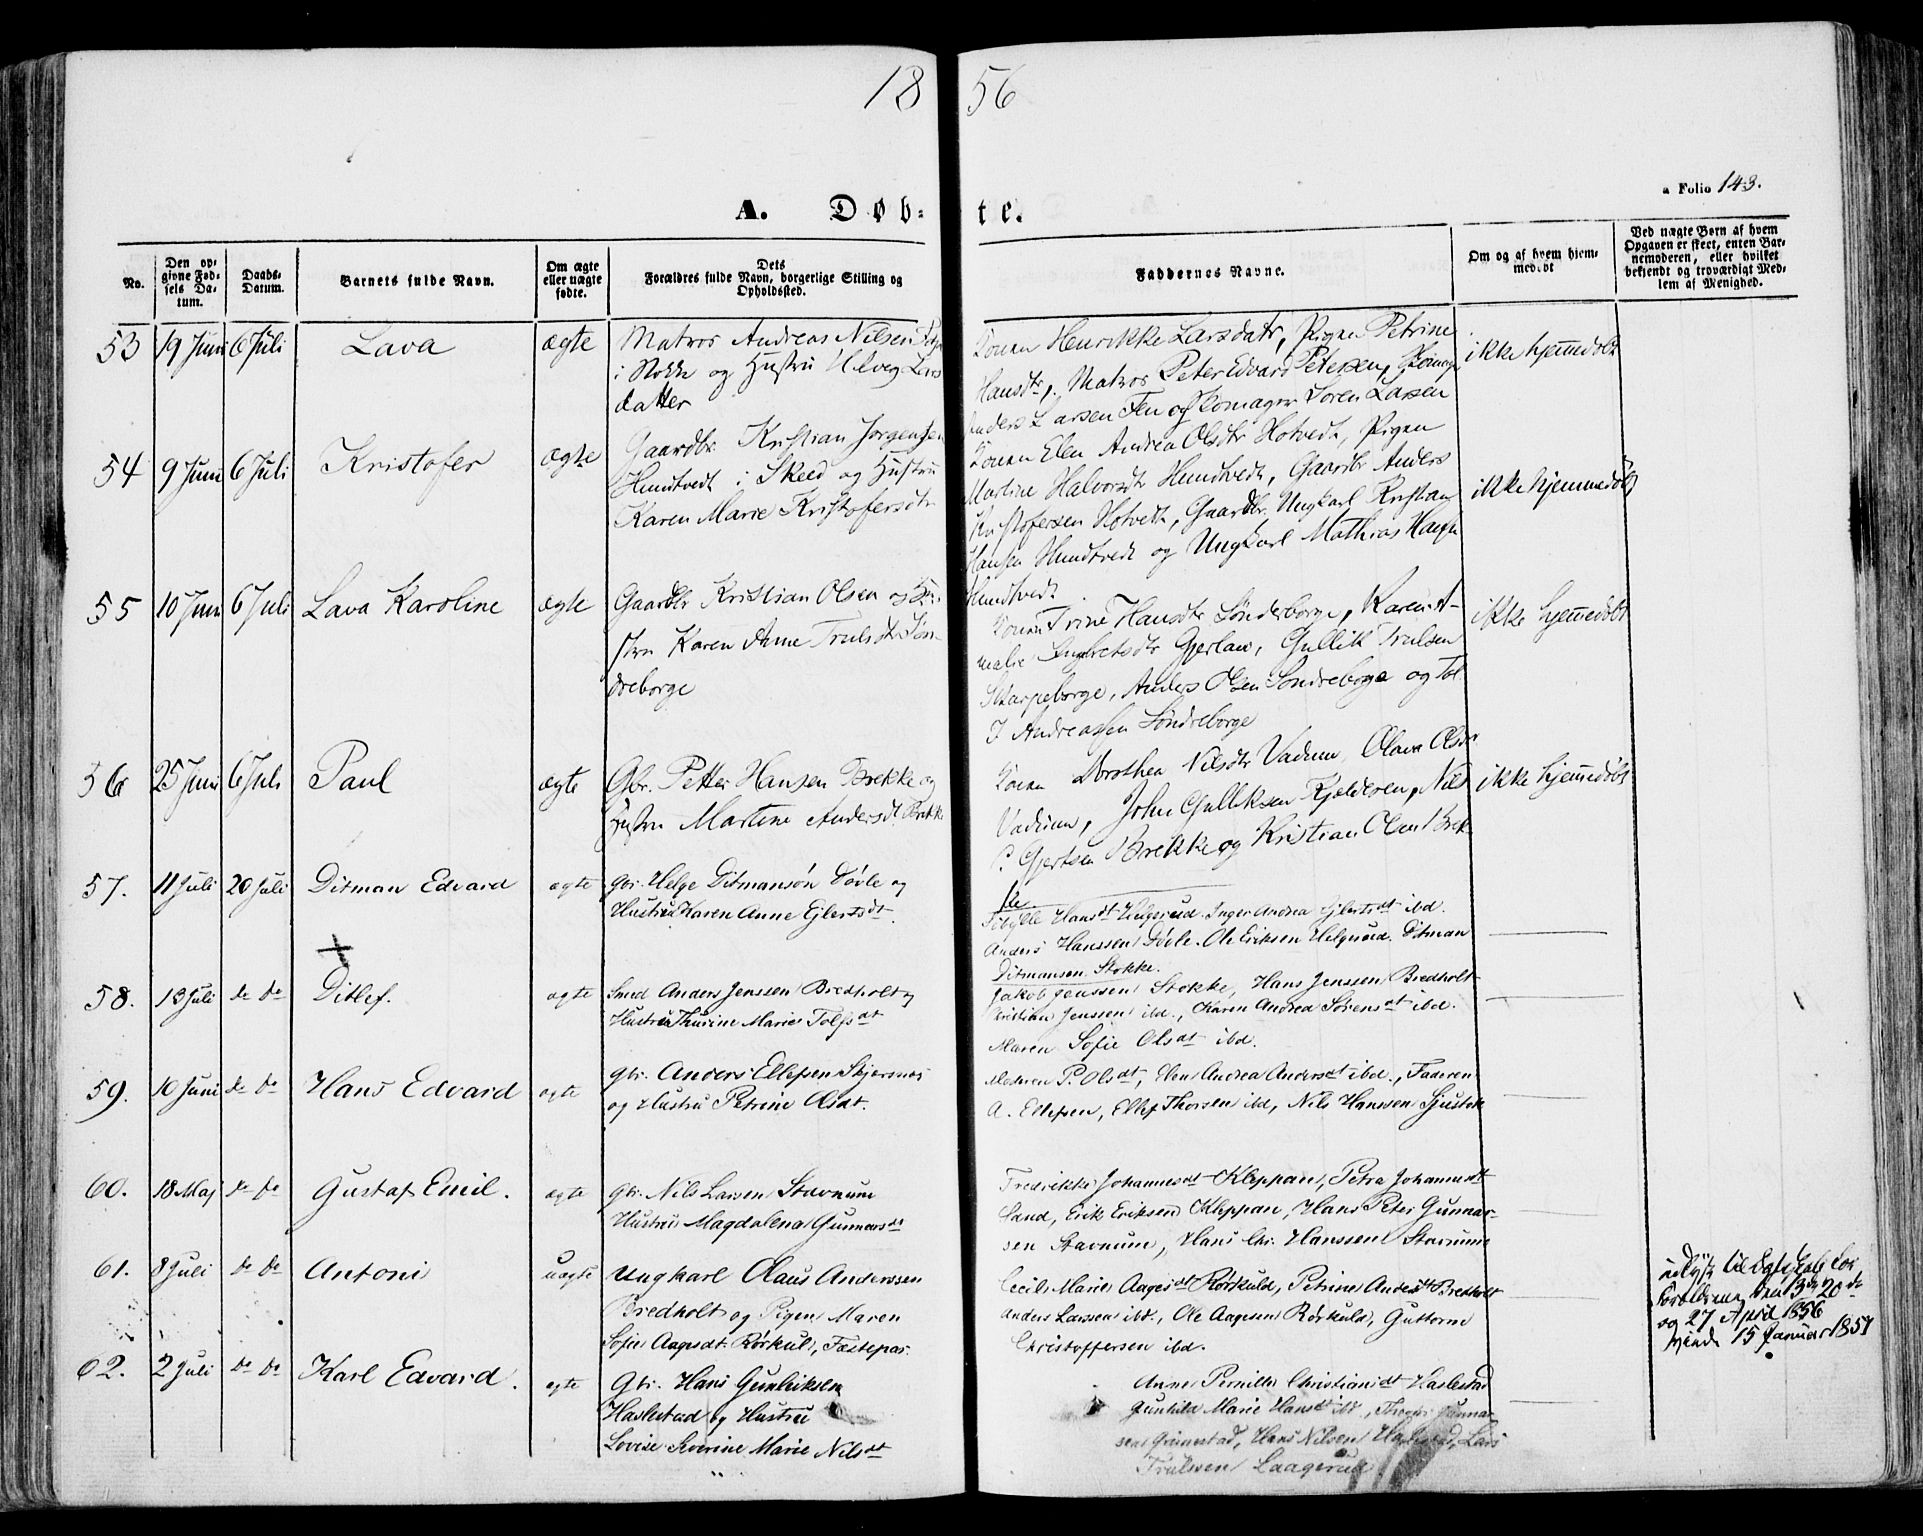 18 56
a Folio 143.
A. Døb- te.
No.
Den opgivne Fødsels Datum.
Daabs-Datum.
Barnets fulde Navn.
Om ægte eller uægte fødte.
Dets Forældres fulde Navn, borgerlige Stilling og Opholdssted.
Faddernes Navne.
Om og af hvem hjemmedøbt
Ved uægte Børn af hvem Opgaven er skeet, enten Barnemoderen, eller hvilket bekjendt og troværdigt Medlem af Menighed.
53 19 Juni 6 Juli Lava ægte
Matros Andreas Nilsen
i Nokke og Hustru Lars
datter
Konen Henrikke Larsdatr, Pigen Petrine
Hansdtr, Matros Peter Edvard Petersen,
Anders Larsen og Skomager Soren Larsen
ikke hjemedøbt
54 9 Juni 6 Juli Kristofer ægte
Gaardbr. Kristian Jorgensen
Hundtvedt i Skeed og Hustru
Karen Marie Kristofersdtr
Konen Elen Andrea Olsdtr Hotvedt, Pigen
Martine Halvorsdtr Hundtvedt, Gaardbr Anders
Kristofersen Hotvedt, Gaardbr. Ungkarl Kristian
Hansen Hundtvedt og Ungkarl Mathias Hansen
Hundtvedt
ikke hjemmedøbt
55 10 Juni 6 Juli Lava Karoline ægte
Gaardbr Kristian Olsen og Hu-
stru Karen Anne Trulsdtr Søn-
dreborge
Konen Trine Hansdtr Sönderborge, Karen A-
malie Engbretsdtr Gjerlau, Gullik Trulsen
Skarpeborge, Anders Olsen Sondreborge og
Andreassen Söndreborge
ikke hjemedøbt
56 25 Juni 6 Juli Paul ægte
Gbr. Petter Hansen Brekke og
Hustru Martine Andersdt Brekke
Konen Dorothea Nilsdtr Vadum, Olava Olsdr
Vadum, John Gulliksen Kjelderen, Nils
P. Gjertsen Brekke og Kristian Olsen Brek-
ke.
ikke hjemmedøbt
57. 11 Juli 20 Juli Ditman Edvard ægte
Gbr. Helge Ditmansön Døvle og
Hustru Karen Anne Ejlertsdt.
Hansdt Helgerud. Inger Andrea Ejlertsdt ibd.
Anders Hanssen Døvle. Ole Eriksen Helgerud. Ditman
Ditmansen Stokke.
58. 13 Juli do do Ditlef. ægte
Smed Anders Jenssen Bredholt og
Hustru Thurine Marie Tolfsdt
Jakob Jenssen Stokke, Hans Jenssen Bredholt
Kristian Jenssen ibd., Karen Andrea Sørensdt ibd.
Maren Sofie Olsdt ibd.
59. 10 Juni do do Hans Edvard ægte
Gbr. Anders Ellefsen Skjersnes
og Hustru Petrine Olsdt.
Moderen P. Olsdt, Elen Andrea Andersdt ibd., Faderen
A. Ellefsen, Ellef Thorsen ibd, Nils Hanssen Sjustok
60. 18 Maj do do Gustaf Emil. ægte
Gbr. Nils Larsen Stavnum
Hustru Magdalena Gunnersdt
Fredrikke Johannesdt Kleppan, Petra Johannesdt
Sand, Erik Eriksen Kleppan, Hans Peter Gunnar-
sen Stavnum, Hans Chr. Hanssen Stavnum
61. 8 Juli do do Antoni uægte
Ungkarl Olaus Anderssen
Bredholt og Pigen Maren
Sofie Aagesdt. Rörkul, Fæstepar.
Cecilie Marie Aagesdt Rörkuld, Petrine Andersdt Bredholt
Anders Larssen ibd., Ole Aagesen Rörkuld, Guttorm
Christoffersen ibd.
udlyst til Ægteskab for
Foreldrene den 13de 20de
og 27 April 1856
viede 15 Januar 1857
62. 2 Juli do do Karl Edvard. ægte
Gbr. Hans Gunleiksen
Haslestad og Hustru
Lovise Severine Marie Nilsdt
Anne Pernille Christiansdt Haslestad
Gunhild Marie Hansdt ibd., Gunnar-
sen Grinestad, Hans Nilsen Haslestad, Lars
Trulssen Laagerud